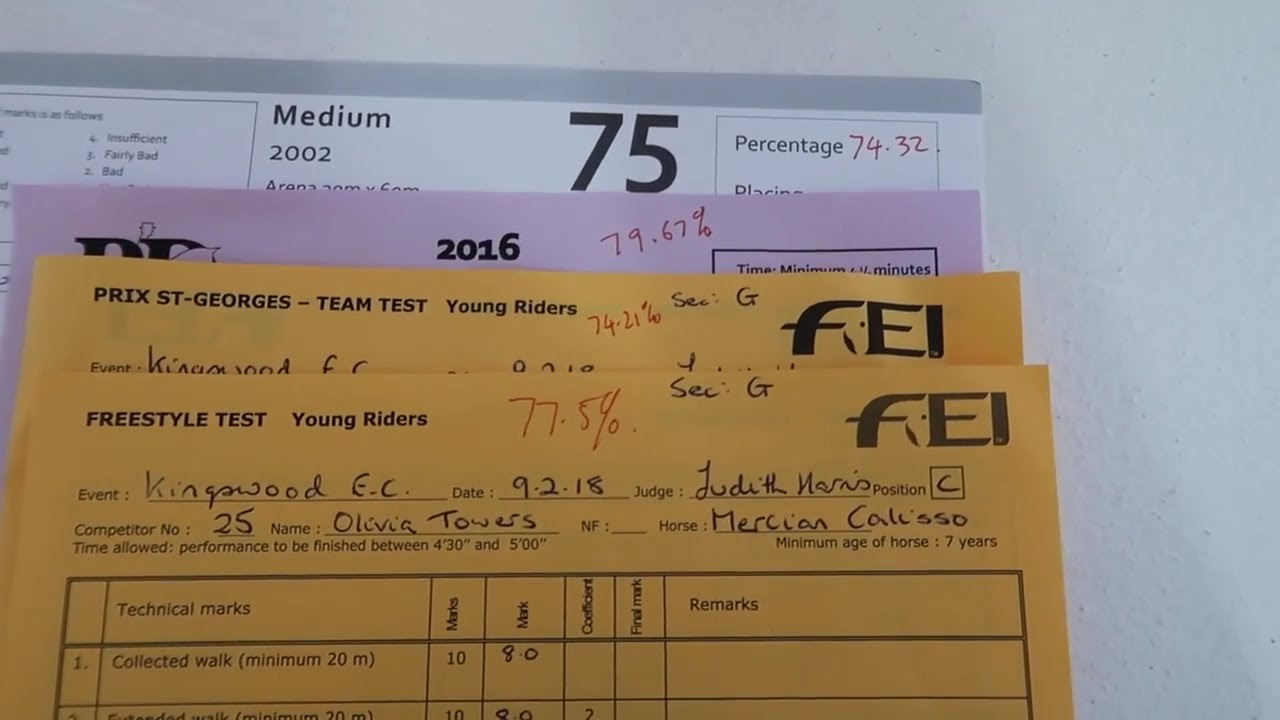 marks is as follows
4. Insufficient
3. Fairly Bad
2. Bad
Medium
2002
Arena 20m x 60m
75
Percentage 74.32
Placing
2016
79.67%
Time: Minimum minutes
PRIX ST-GEORGES – TEAM TEST Young Riders 74.21% Sec: G FEI
Event: Kingswood E.C.
FREESTYLE TEST Young Riders 77.5%. Sec: G FEI
Event : Kingswood E.C. Date : 9.2.18 Judge : Judith Harris Position C
Competitor No : 25 Name : Olivia Towers NF : Horse : Mercian Calisso
Time allowed: performance to be finished between 4'30" and 5'00" Minimum age of horse : 7 years
Technical marks Marks Mark Coefficient Final mark Remarks
1. Collected walk (minimum 20 m) 10 8.0
2. Extended walk (minimum 20 m) 10 8.0 2